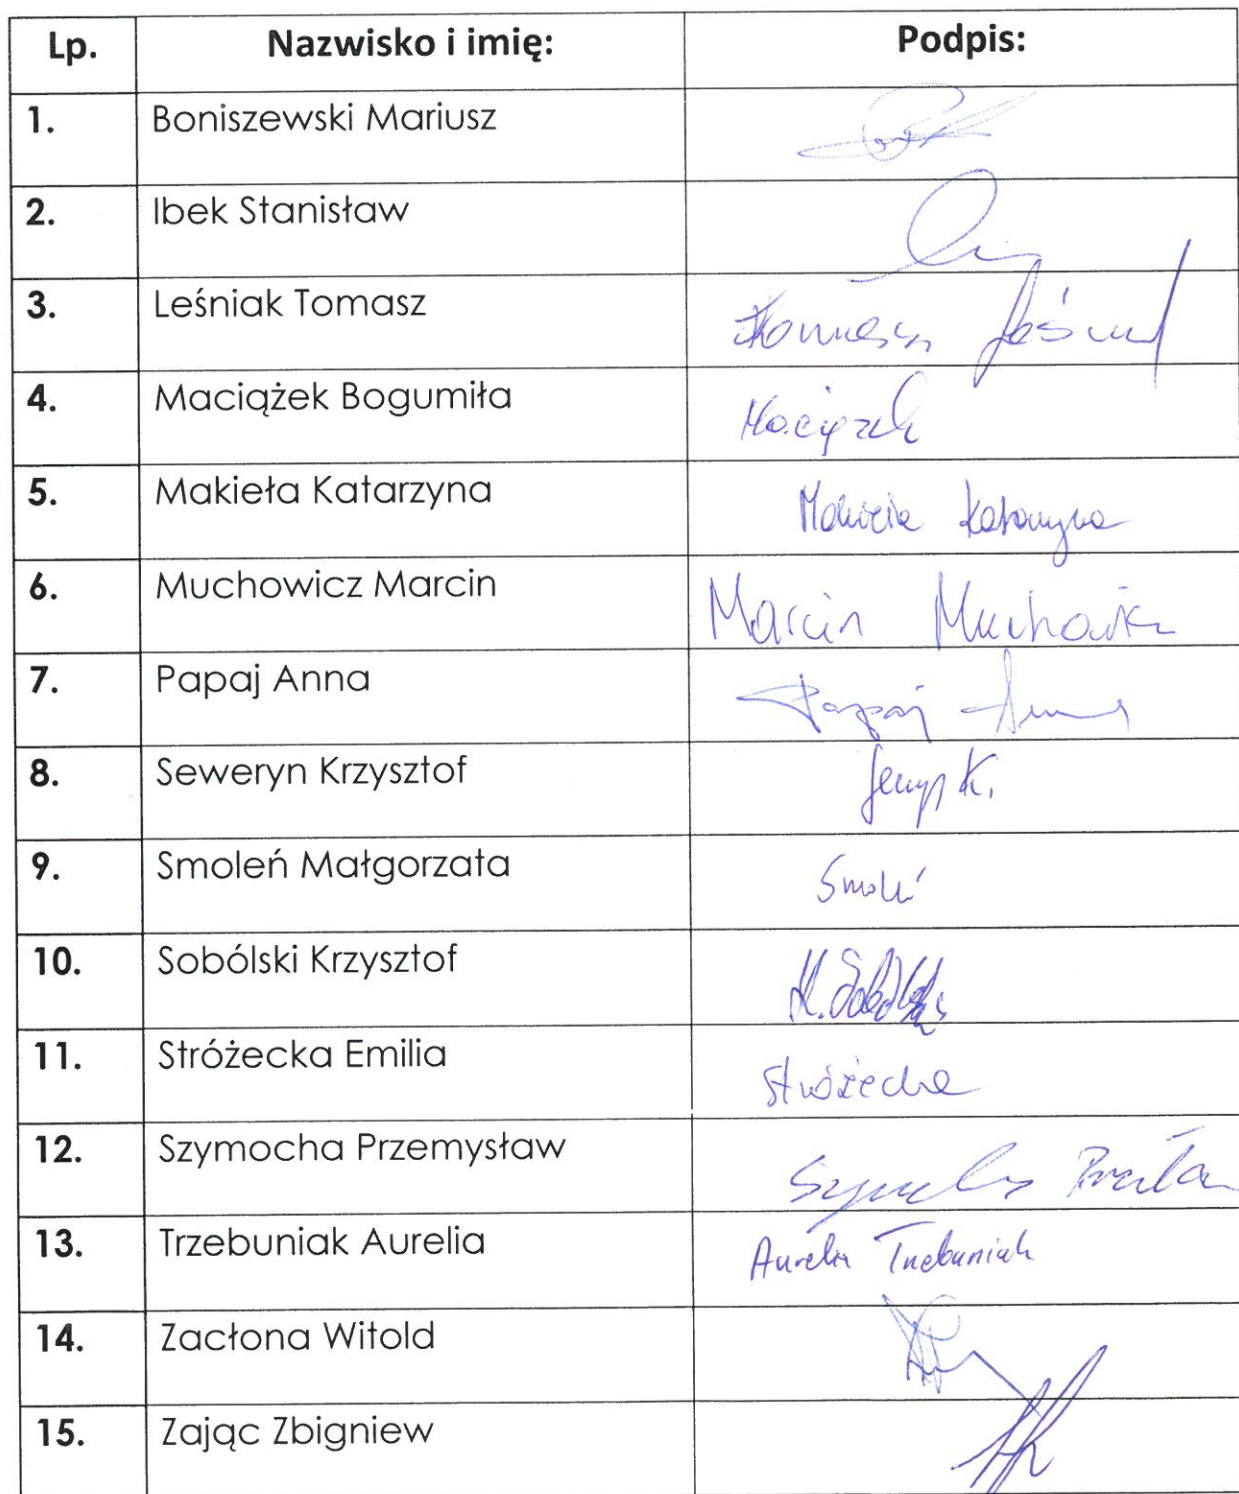 Lp. Nazwisko i imię: Podpis:
1. Boniszewski Mariusz
2. Ibek Stanisław
3. Leśniak Tomasz Tomasz
4. Maciążek Bogumiła
5. Makieła Katarzyna Makieła Katarzyna
6. Muchowicz Marcin Marcin Muchowicz
7. Papaj Anna Papaj Anna
8. Seweryn Krzysztof K.
9. Smoleń Małgorzata Smoleń
10. Sobólski Krzysztof K. Sobólski
11. Stróżecka Emilia Stróżecka
12. Szymocha Przemysław
13. Trzebuniak Aurelia Aurelia Trzebuniak
14. Zacłona Witold
15. Zając Zbigniew